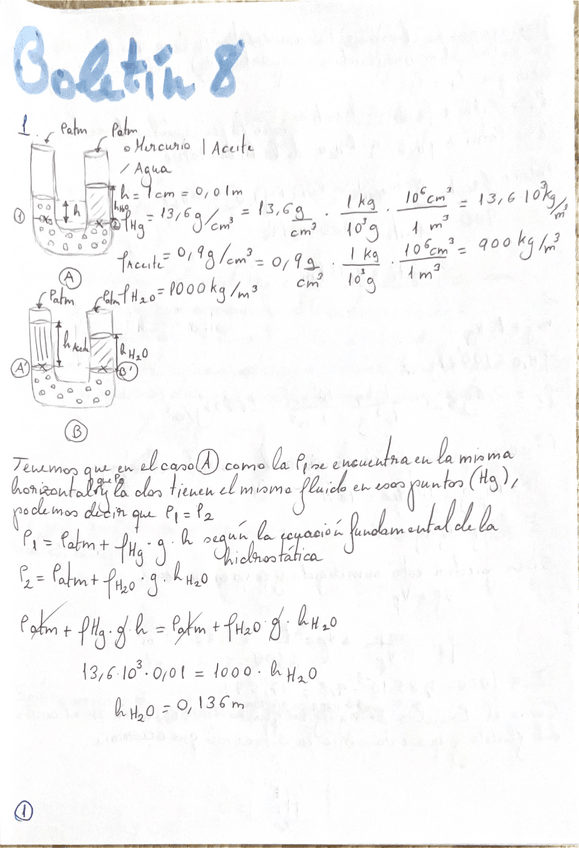 Boletín 8
1.
Patm Patm
o Mercurio | Aceite
/ Agua
h = 1cm = 0,01m
h
① ②
ρHg = 13,6 g/cm³ = 13,6 g/cm³ · 1 kg/10³g · 10⁶cm³/1 m³ = 13,6·10³ kg/m³
ρAceite = 0,9 g/cm³ = 0,9 g/cm³ · 1 kg/10³g · 10⁶cm³/1 m³ = 900 kg/m³
Ⓐ
Patm Patm ρH₂O = 1000 kg/m³
hAceit hH₂O
Ⓐ' Ⓑ'
Ⓑ
Tenemos que en el caso Ⓐ como la P₁ se encuentra en la misma
horizontal que P₂ y la dos tienen el mismo fluido en esos puntos (Hg),
podemos decir que P₁ = P₂
P₁ = Patm + ρHg · g · h según la ecuación fundamental de la
hidrostática
P₂ = Patm + ρH₂O · g · hH₂O
Patm + ρHg · g · h = Patm + ρH₂O · g · hH₂O
13,6·10³·0,01 = 1000 · hH₂O
hH₂O = 0,136 m
①